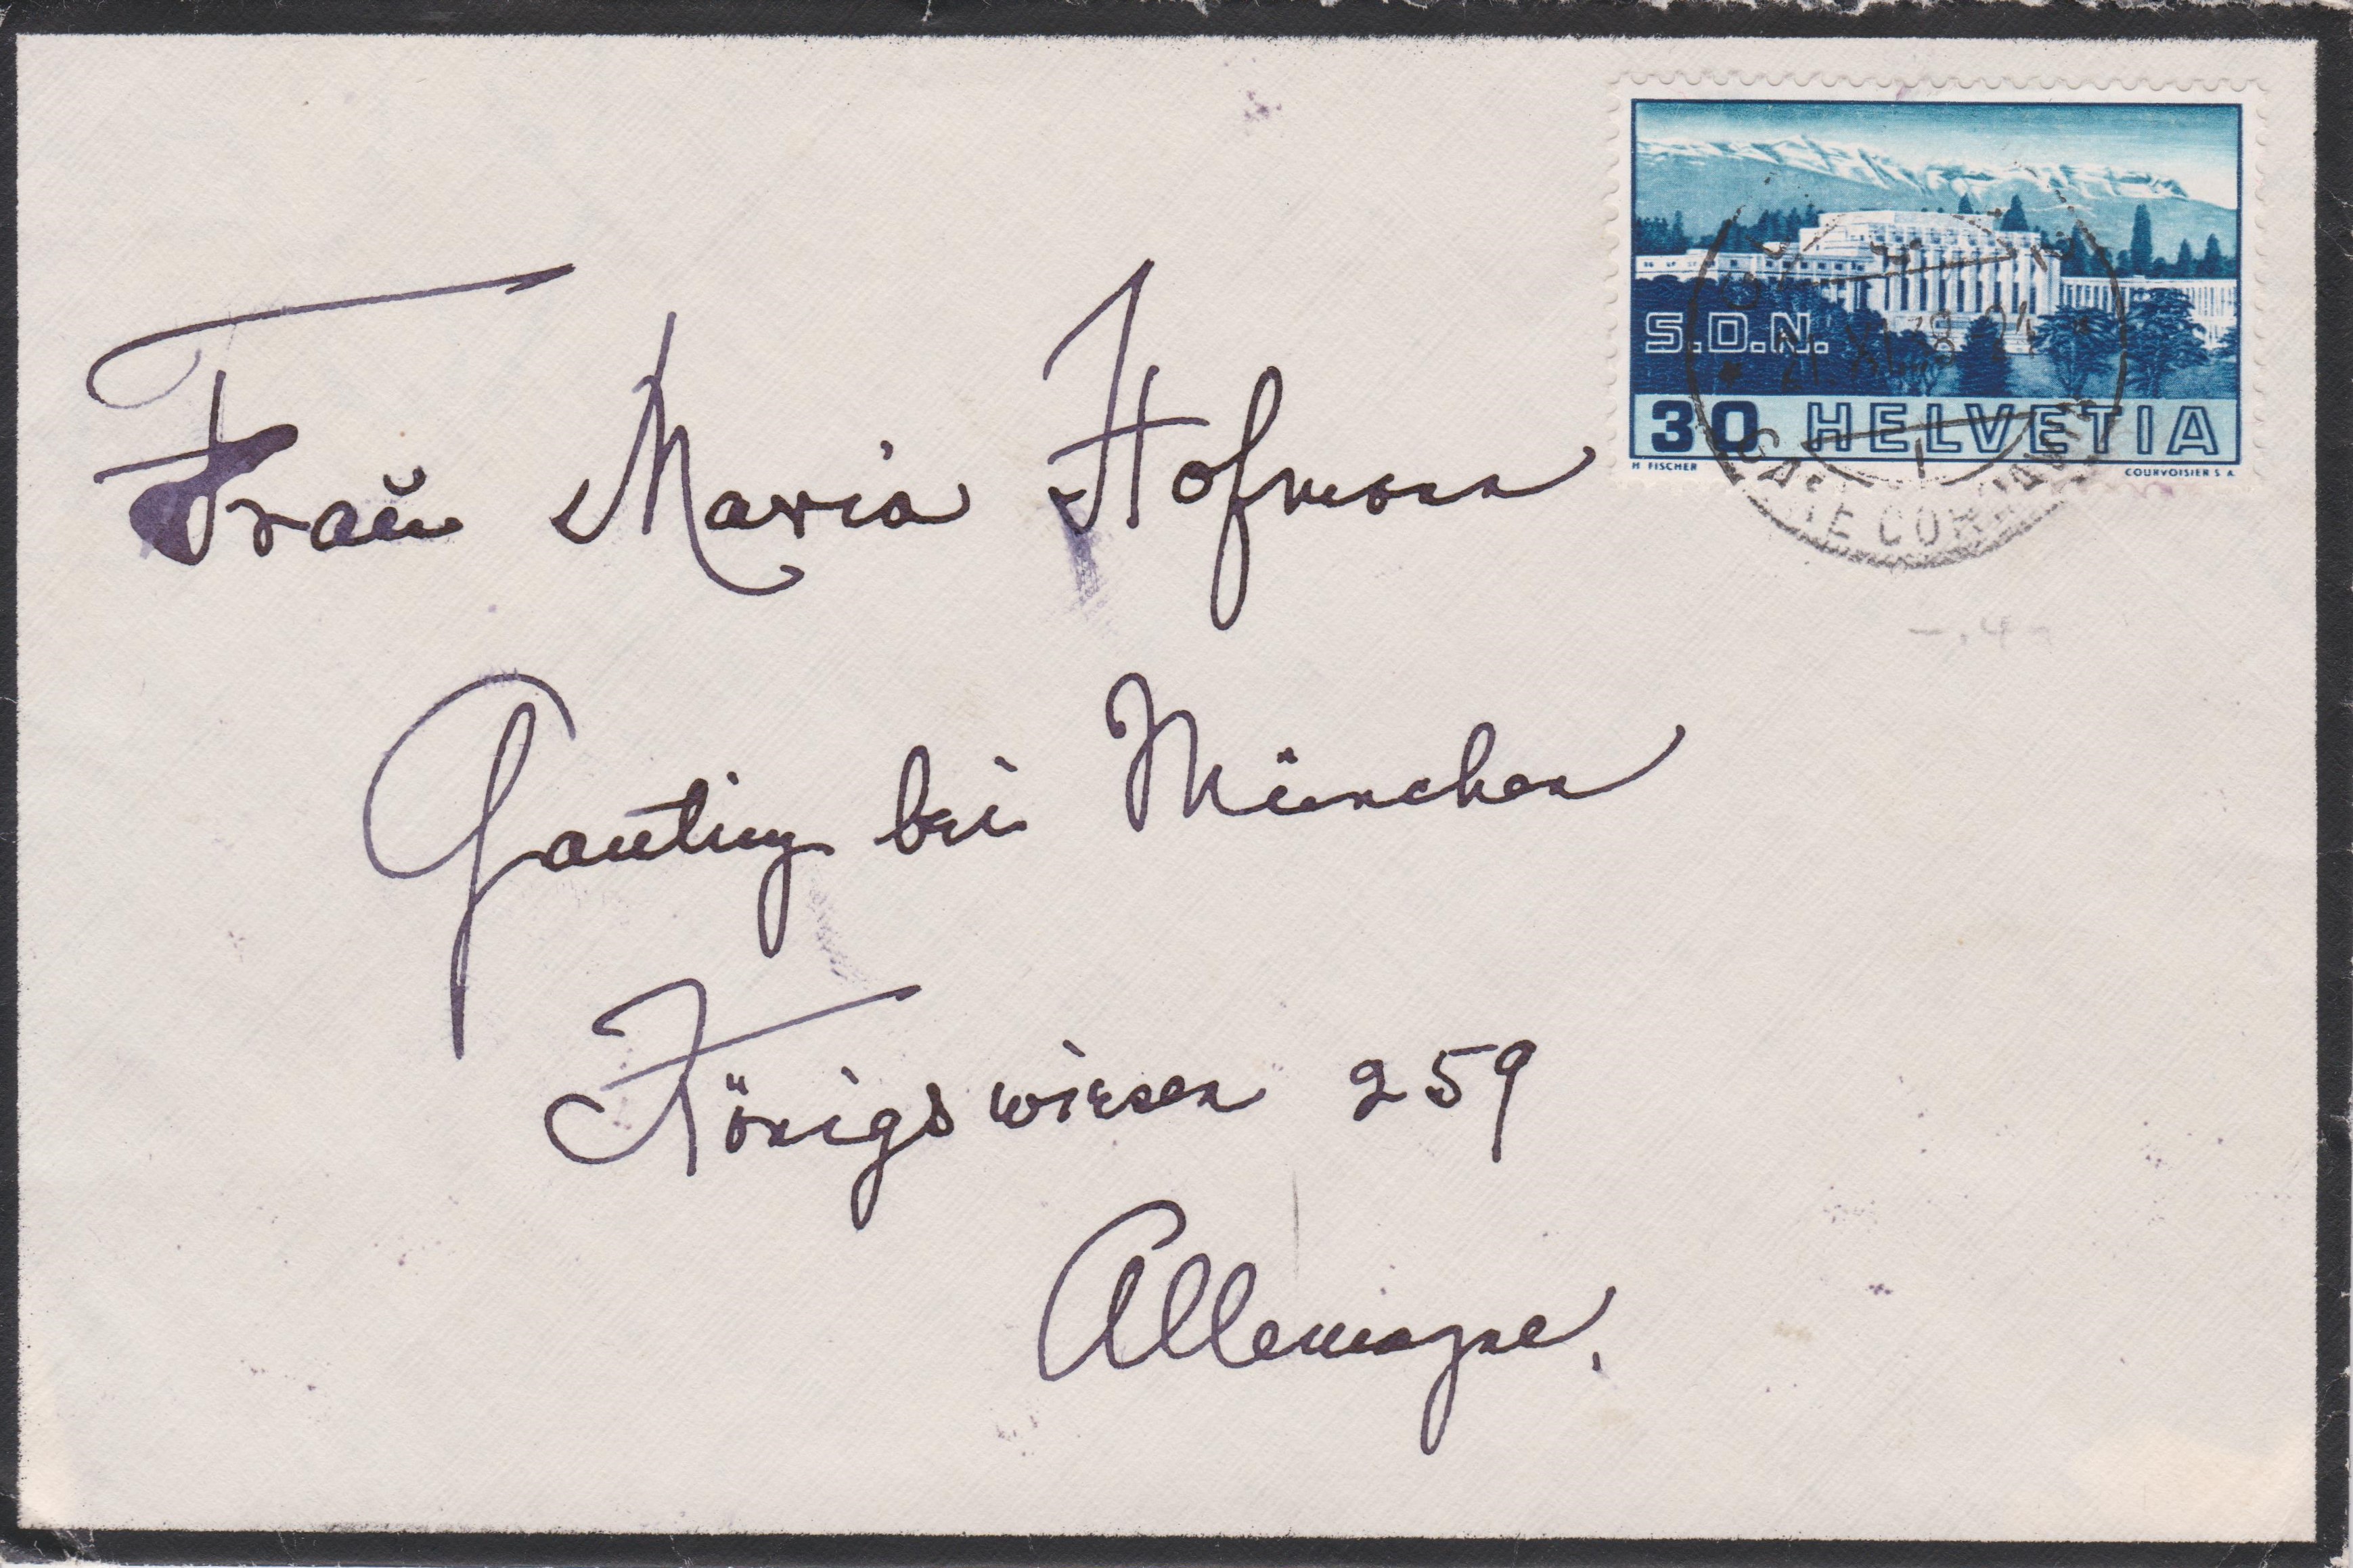 S.D.N.
30 HELVETIA
H FISCHER COURVOISIER S.A.
21.XI.38
GARE CORNAVIN
Fraŭ Maria Hofmann
Gauting bei München
Königswiesen 259
Allemagne.